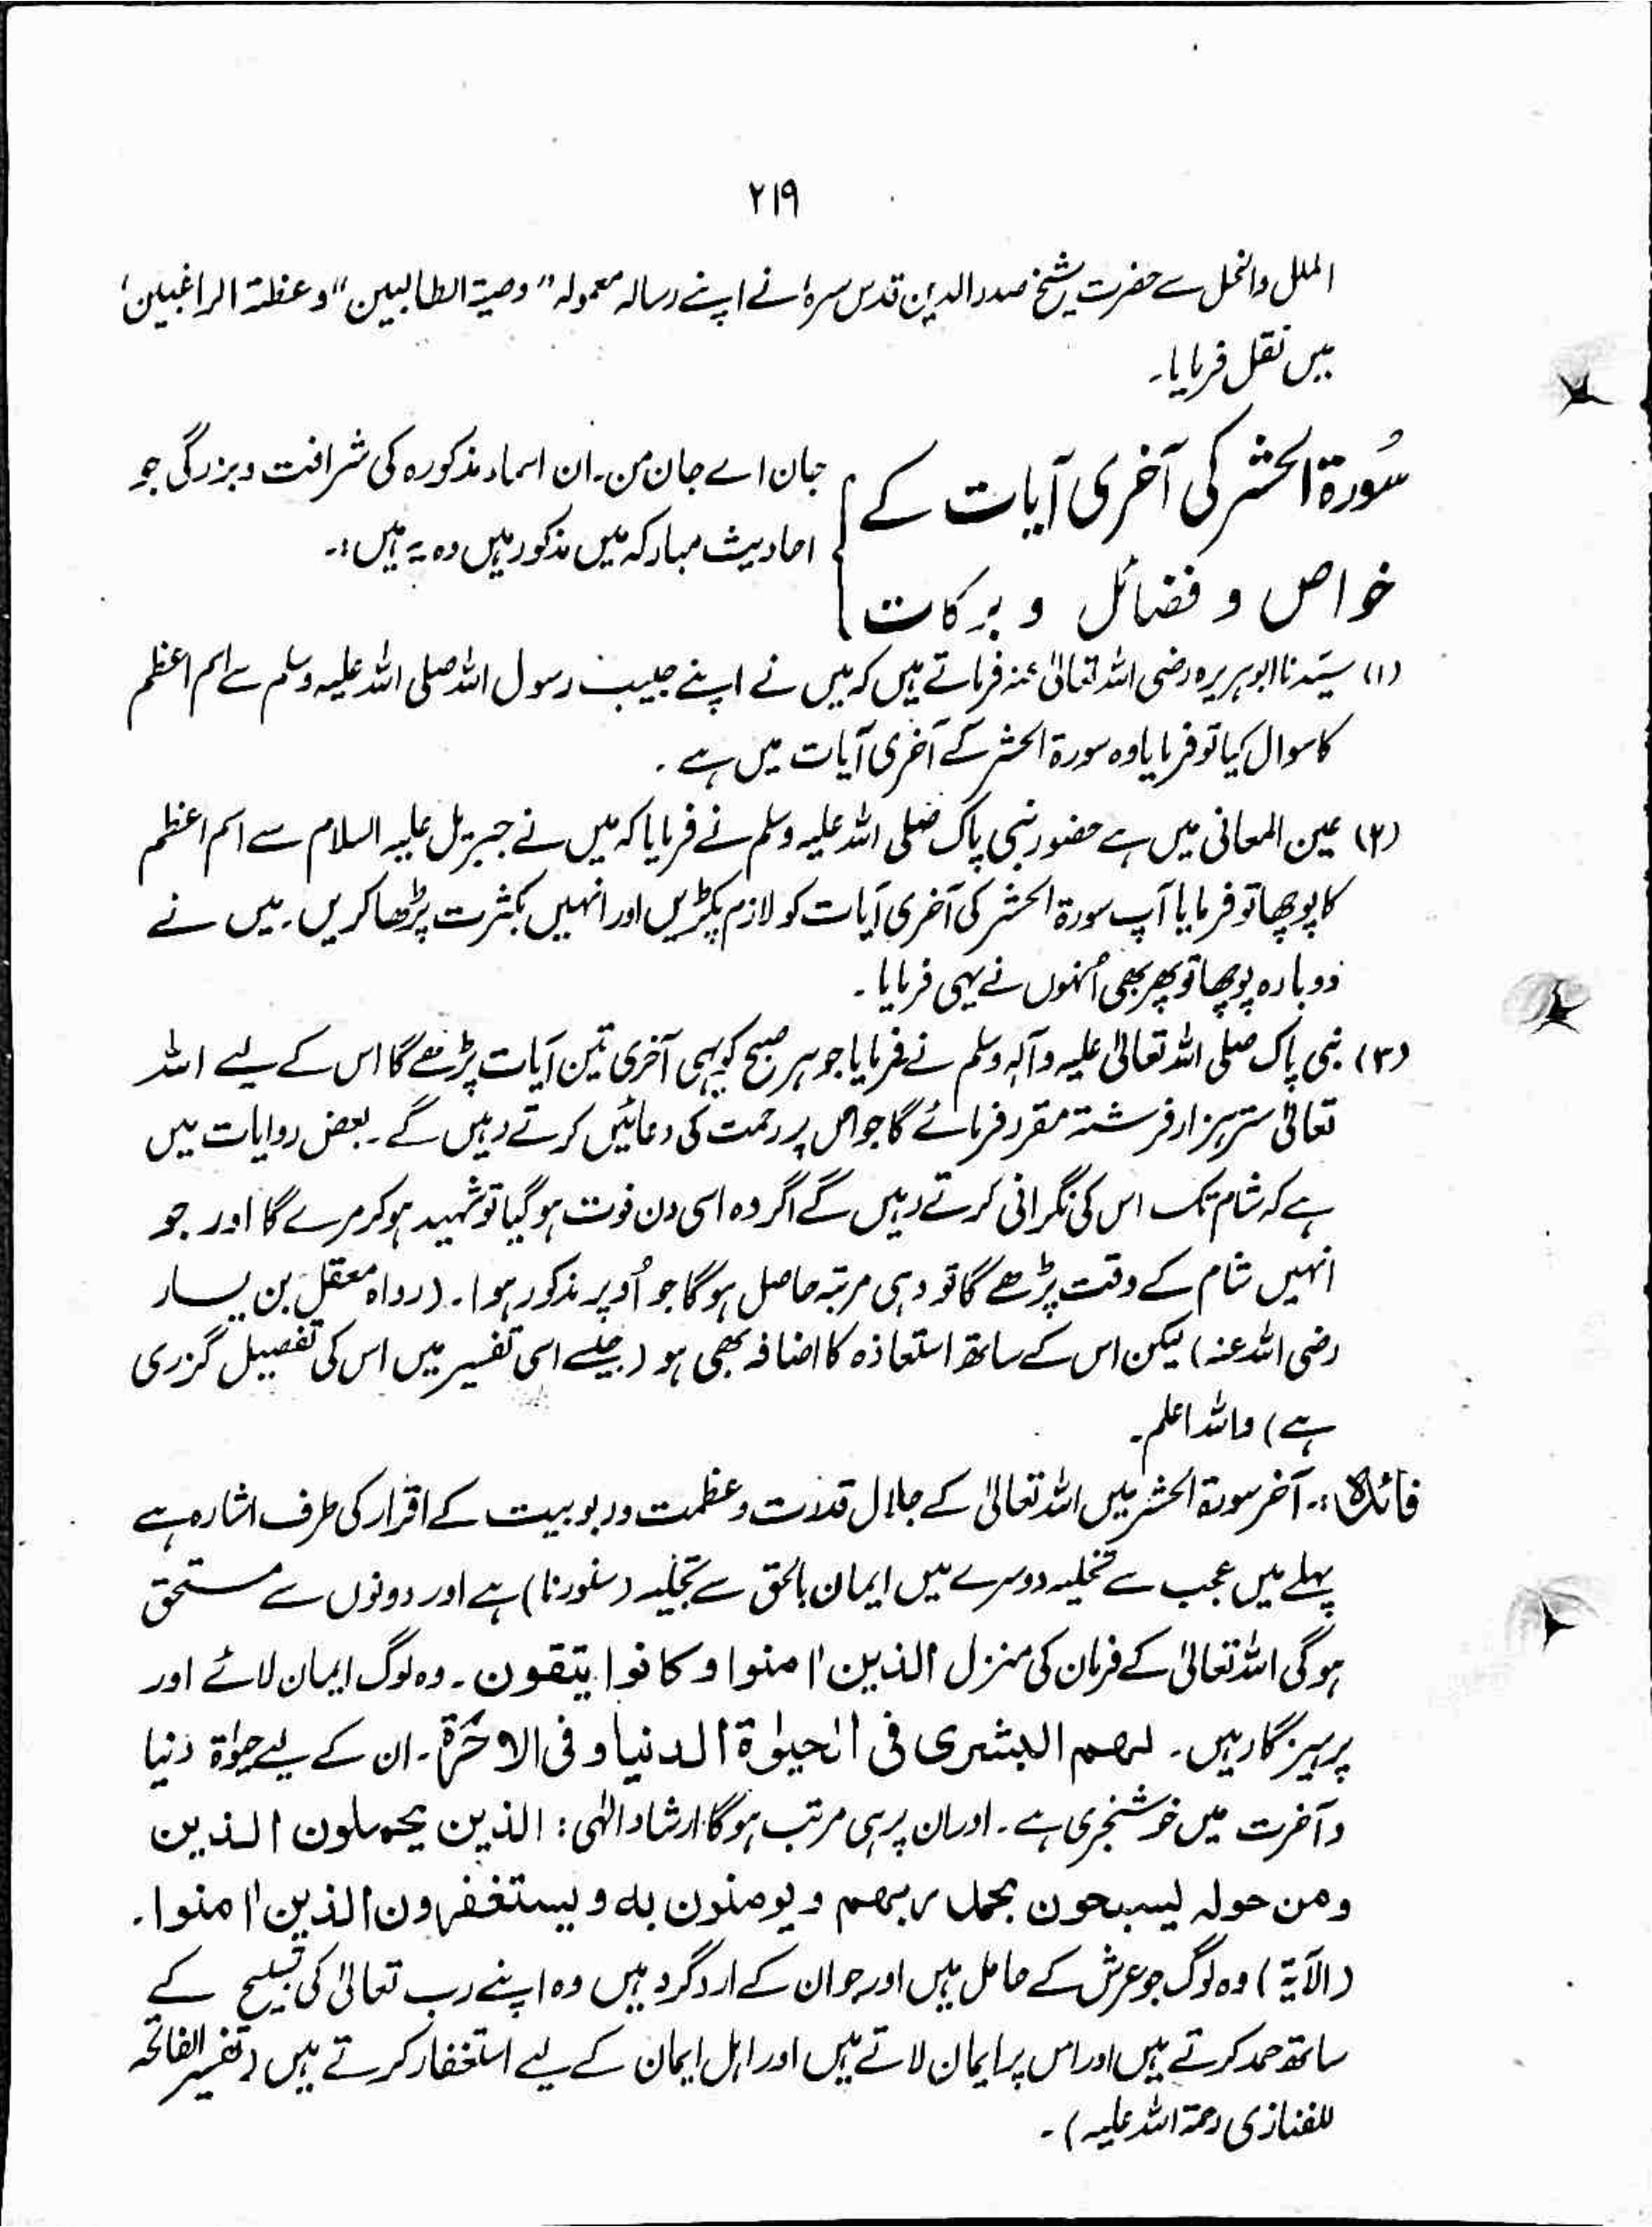 ۲۱۹
الملل والنحل سے حضرت شیخ صدرالدین قدس سرہٗ نے اپنے رسالہ معمولہ "وصیۃ الطالبین" وعظۃ الراغبین'
میں نقل فرمایا۔
سُورۃ الحشر کی آخری آیات کے
خواص و فضائل و برکات
جان اے جان من۔ ان اسماء مذکورہ کی شرافت و بزرگی جو
احادیث مبارکہ میں مذکور ہیں وہ یہ ہیں:۔
(۱) سیّدنا ابوہریرہ رضی اللہ تعالیٰ عنہ فرماتے ہیں کہ میں نے اپنے حبیب رسول اللہ صلی اللہ علیہ وسلم سے اسم اعظم
کا سوال کیا تو فرمایا وہ سورۃ الحشر کے آخری آیات میں ہے۔
(۲) عین المعانی میں ہے حضور نبی پاک صلی اللہ علیہ وسلم نے فرمایا کہ میں نے جبریل علیہ السلام سے اسم اعظم
کا پوچھا تو فرمایا آپ سورۃ الحشر کی آخری آیات کو لازم پکڑیں اور انہیں بکثرت پڑھا کریں۔ میں نے
دوبارہ پوچھا تو پھر بھی اُنہوں نے یہی فرمایا۔
(۳) نبی پاک صلی اللہ تعالیٰ علیہ وآلہ وسلم نے فرمایا جو ہر صبح کو یہی آخری تین آیات پڑھے گا اس کے لیے اللہ
تعالیٰ ستر ہزار فرشتہ مقرر فرمائے گا جو اس پر رحمت کی دعائیں کرتے رہیں گے۔ بعض روایات میں
ہے کہ شام تک اس کی نگرانی کرتے رہیں گے اگر وہ اسی دن فوت ہو گیا تو شہید ہو کر مرے گا اور جو
انہیں شام کے وقت پڑھے گا تو وہی مرتبہ حاصل ہو گا جو اُوپر مذکور ہوا۔ (رواہ معقل بن یسار
رضی اللہ عنہ) لیکن اس کے ساتھ استعاذہ کا اضافہ بھی ہو (جیسے اسی تفسیر میں اس کی تفصیل گزری
ہے) واللہ اعلم۔
فائدہ:۔ آخر سورۃ الحشر میں اللہ تعالیٰ کے جلال قدرت وعظمت وربوبیت کے اقرار کی طرف اشارہ ہے
پہلے میں عجب سے تخلیہ دوسرے میں ایمان بالحق سے تجلیہ (سنورنا) ہے اور دونوں سے مستحق
ہوگی اللہ تعالیٰ کے فرمان کی منزل الذین اٰمنوا وکانوا یتقون۔ وہ لوگ ایمان لائے اور
پرہیزگار ہیں۔ لہم البشری فی الحیوٰۃ الدنیا و فی الاٰخرۃ۔ ان کے لیے حیوٰۃ دنیا
و آخرت میں خوشخبری ہے۔ اور ان پر ہی مرتب ہو گا ارشاد الٰہی: الذین یحملون الذین
ومن حولہ یسبحون بحمد ربہم و یومنون بہ و یستغفرون الذین اٰمنوا۔
(الآیۃ) وہ لوگ جو عرش کے حامل ہیں اور جو ان کے ارد گرد ہیں وہ اپنے رب تعالیٰ کی تسبیح کے
ساتھ حمد کرتے ہیں اور اس پر ایمان لاتے ہیں اور اہل ایمان کے لیے استغفار کرتے ہیں (تفسیر الفاتحہ
للفنازی رحمۃ اللہ علیہ)۔